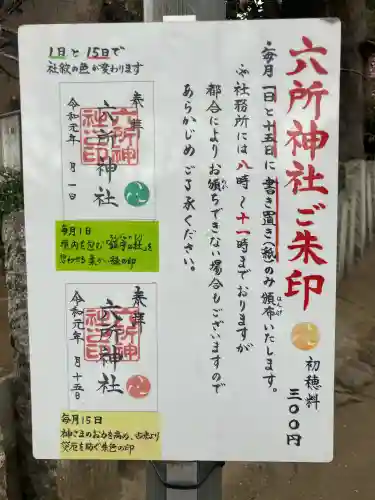 六所神社ご朱印
初穂料
三〇〇円
・毎月一日と十五日に書き置き(紙)のみ頒布いたします。
※社務所には八時〜十一時までおりますが
都合によりお頒ちできない場合もございますので
あらかじめご了承ください。
1日と15日で
社紋の色が変わります
奉拝
六所神社
令和元年 月一日
毎月1日
境内を包む"鎮守の杜"を
思わせる素かい緑の印
奉拝
六所神社
令和元年 月十五日
毎月15日
神さまのお力を高め、古来より
災厄を防ぐ朱色の印